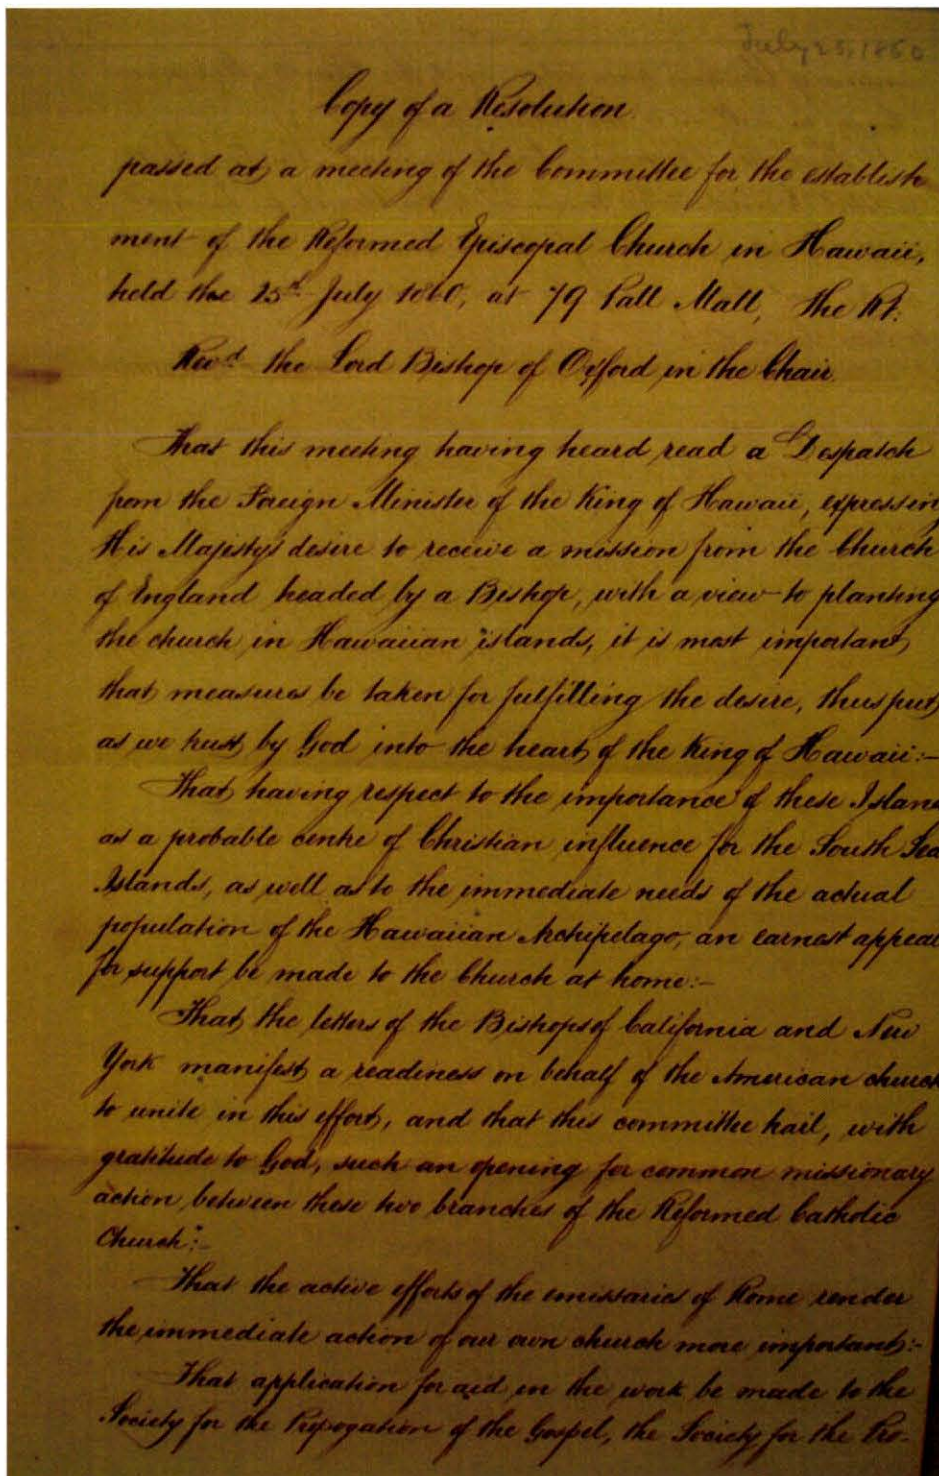 July 25, 1860
Copy of a Resolution
passed at a meeting of the Committee for the establish
ment of the Reformed Episcopal Church in Hawaii,
held the 25th July 1860, at 79 Pall Mall, the Rt:
Revd the Lord Bishop of Oxford in the Chair.
That this meeting having heard read a Despatch
from the Foreign Minister of the King of Hawaii, expressing
His Majisty's desire to receive a mission from the Church
of England headed by a Bishop, with a view to planting
the church in Hawaiian islands, it is most important,
that measures be taken for fulfilling the desire, thus put,
as we trust, by God into the heart of the King of Hawaii:-
That having respect to the importance of these Islan
as a probable centre of Christian influence for the South Sea
Islands, as well as to the immediate needs of the actual
population of the Hawaiian Archipelago, an earnest appeal
for support be made to the Church at home:-
That the letters of the Bishops of California and New
York manifest a readiness on behalf of the American church
to unite in this effort, and that this committee hail, with
gratitude to God, such an opening for common missionary
action between these two branches of the Reformed Catholic
Church:-
That the active efforts of the emissaries of Rome render
the immediate action of our own church more important:-
That application for aid in the work be made to the
Society for the Propogation of the Gospel, the Society for the Pro-